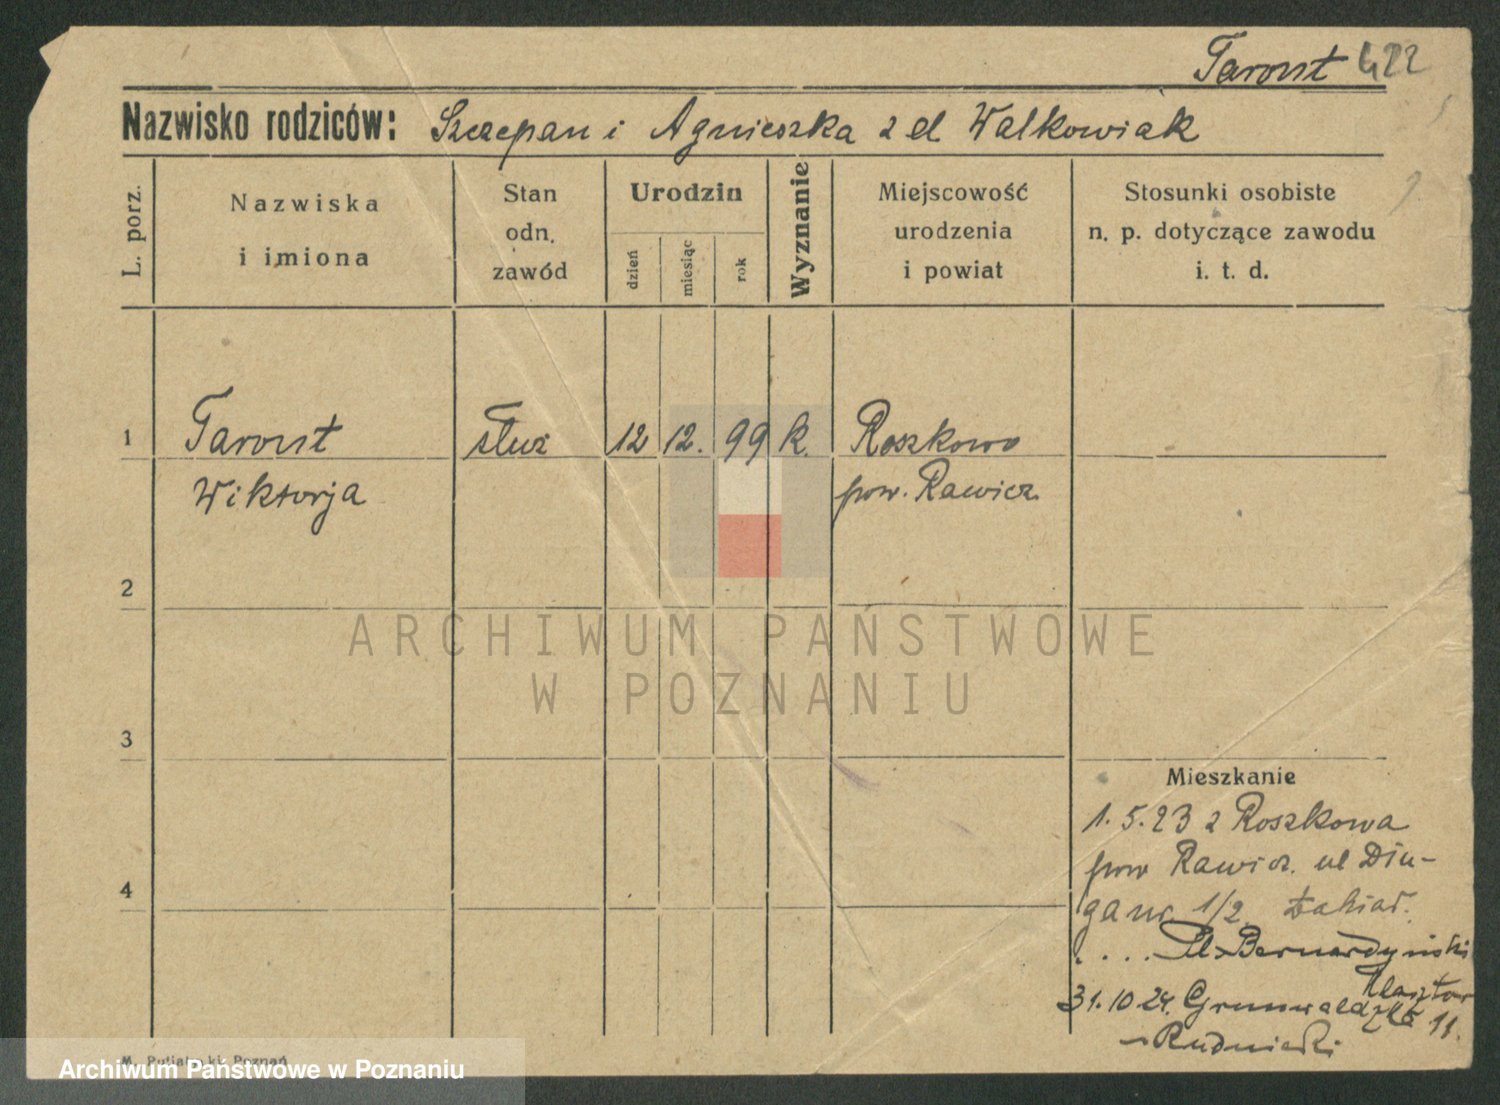 Tarout 422
Nazwisko rodziców: Szczepan i Agnieszka z d Walkowiak
L. porz.
Nazwiska
i imiona
Stan
odn.
zawód
Urodzin
dzień
miesiąc
rok
Wyznanie
Miejscowość
urodzenia
i powiat
Stosunki osobiste
n. p. dotyczące zawodu
i. t. d.
1 Tarout służ 12 12. 99 k. Roszkowo
Wiktorja pow. Rawicz
2
ARCHIWUM PAŃSTWOWE
W POZNANIU
3
Mieszkanie
1. 5. 23 z Roszkowa
pow Rawicz. ul Dłu-
4
ga nr 1/2.
.... Pl. Bernardyński
Klasztor
31. 10 24. Grunwaldzka 11.
Rudnicki
M. Putiatycki, Poznań
Archiwum Państwowe w Poznaniu